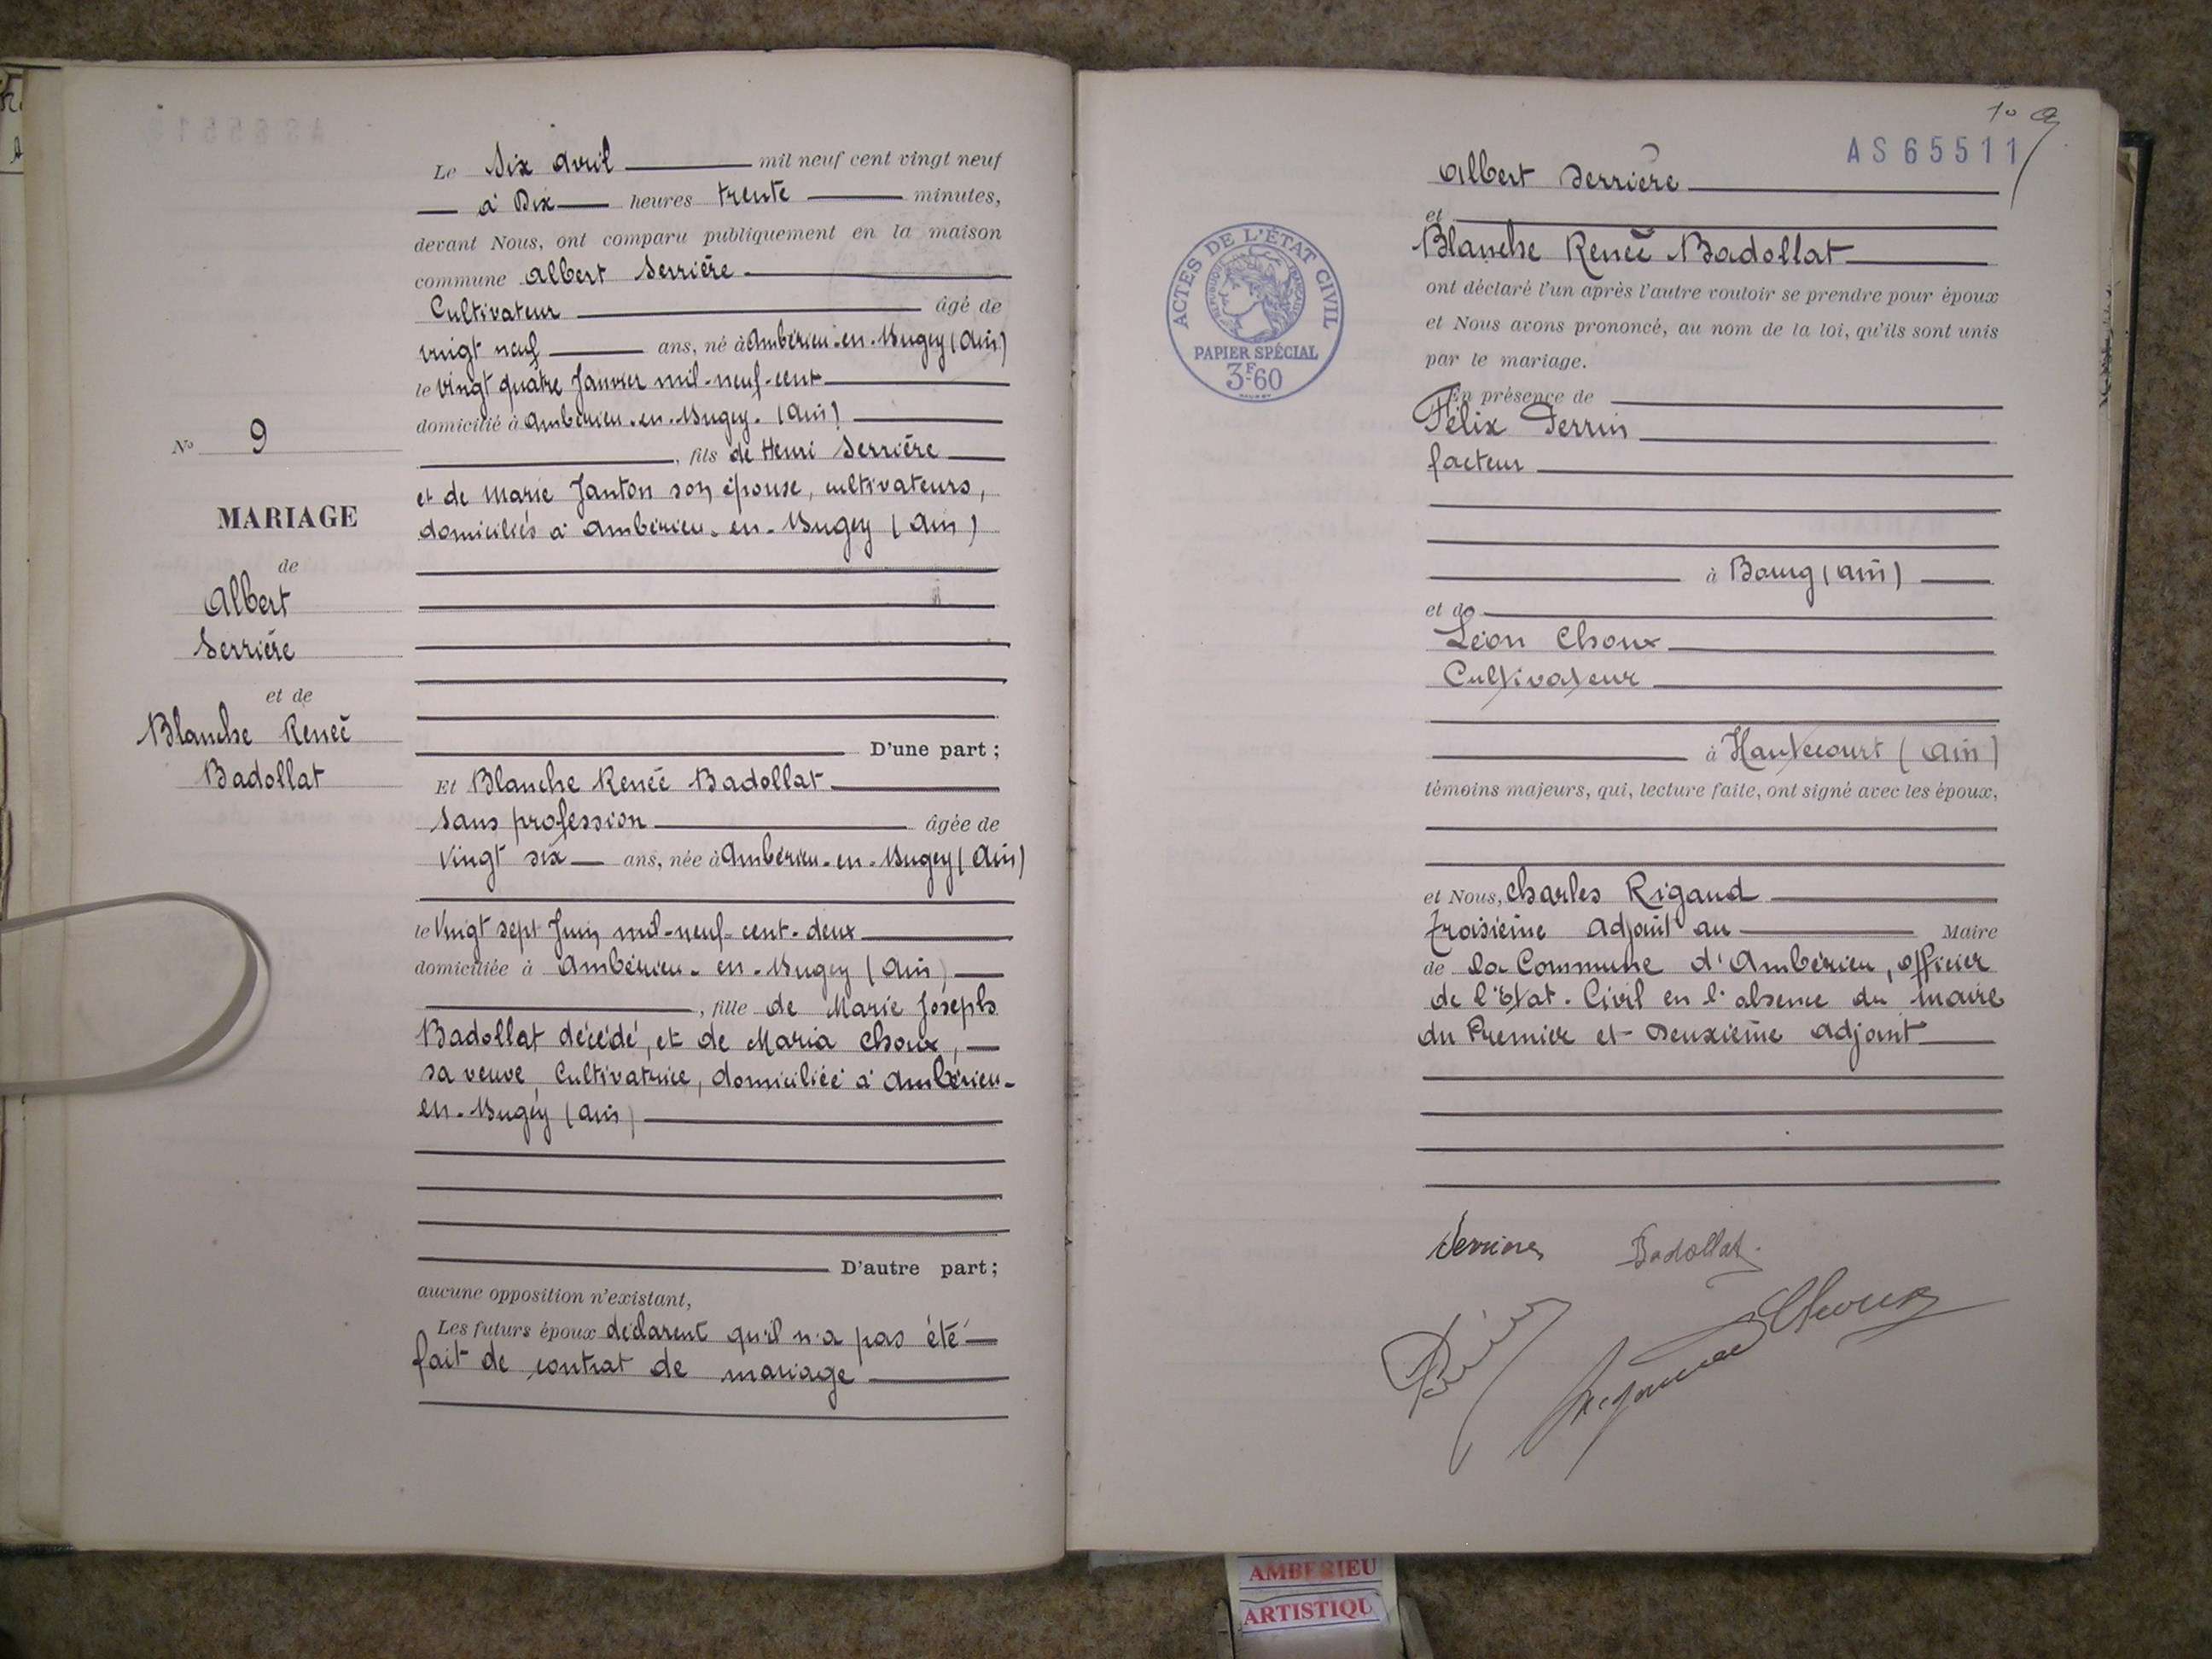 Le Six Avril mil neuf cent vingt neuf
à Dix heures trente minutes,
devant Nous, ont comparu publiquement en la maison
commune Albert Serrière
Cultivateur âgé de
vingt neuf ans, né à Ambérieu-en-Bugey (Ain)
le vingt quatre Janvier mil-neuf-cent
domicilié à Ambérieu-en-Bugey. (Ain)
, fils de Henri Serrière
et de Marie Janton son épouse, cultivateurs,
domiciliés à Ambérieu-en-Bugey (Ain)
D'une part ;
Nº 9
MARIAGE
de
Albert
Serrière
et de
Blanche Renée
Badollat
Et Blanche Renée Badollat
Sans profession âgée de
Vingt six ans, née à Ambérieu-en-Bugey (Ain)
le Vingt sept Juin mil-neuf-cent-deux
domiciliée à Ambérieu-en-Bugey (Ain)
, fille de Marie Joseph
Badollat décédé, et de Maria Choux,
sa veuve, Cultivatrice, domiciliée à Ambérieu-
en-Bugey (Ain)
D'autre part ;
aucune opposition n'existant,
Les futurs époux déclarent qu'il n'a pas été
fait de contrat de mariage
10
AS65511
Albert Serrière
et
Blanche Renée Badollat
ont déclaré l'un après l'autre vouloir se prendre pour époux
et Nous avons prononcé, au nom de la loi, qu'ils sont unis
par le mariage.
ACTES DE L'ÉTAT CIVIL
RÉPUBLIQUE FRANÇAISE
PAPIER SPÉCIAL
3F60
En présence de
Félix Perrin
facteur
à Bourg (Ain)
et de
Léon Choux
Cultivateur
à Hautecourt (Ain)
témoins majeurs, qui, lecture faite, ont signé avec les époux,
et Nous, Charles Rigaud
troisième Adjoint au Maire
de la Commune d'Ambérieu, officier
de l'Etat-Civil en l'absence du Maire
du Premier et Deuxième Adjoint
Serrière Badollat
Choux
AMBERIEU
ARTISTIQU